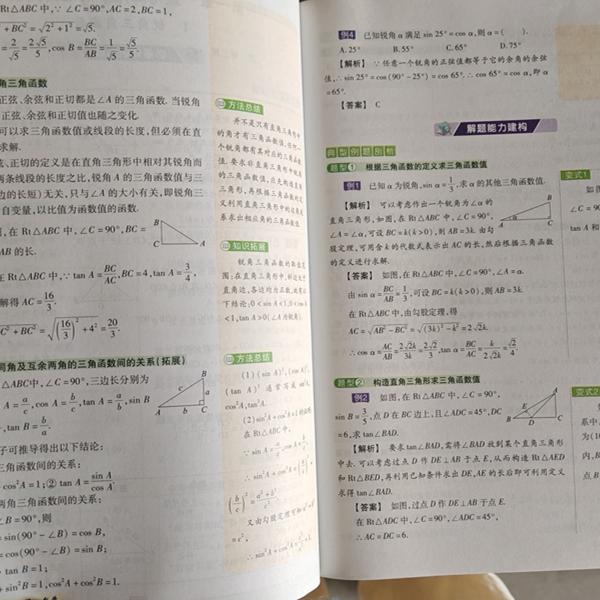 Rt△ABC中,∵∠C=90°,AC=2,BC=1,
+BC²=√2²+1²=√5.
2/√5=2√5/5,cos B=BC/AB=1/√5=√5/5.
角三角函数
正弦、余弦和正切都是∠A的三角函数.当锐角
正弦、余弦和正切值也随之变化.
可以求三角函数值或线段的长度,但必须在直
求解.
弦、正切的定义是在直角三角形中相对其锐角而
两条线段的长度之比,锐角A的三角函数值与三
边的长短)无关,只与∠A的大小有关,即锐角三
自变量,以比值为函数值的函数.
在Rt△ABC中,∠C=90°,BC=
AB的长.
B
C
A
在Rt△ABC中,∵tan A=BC/AC,BC=4,tan A=3/4,
解得AC=16/3.
C²+BC²=√(16/3)²+4²=20/3.
同角及互余两角的三角函数间的关系(拓展)
△ABC中,∠C=90°,三边长分别为
A=a/c,cos A=b/c,tan A=a/b,sin B
tan B=b/a.
B
c
a
A
b
C
子可推导得出以下结论:
三角函数间的关系:
cos²A=1;②tan A=sin A/cos A.
两角三角函数间的关系:
∠B=90°,则
=sin(90°-∠B)=cos B,
=cos(90°-∠B)=sin B;
tan B=1;
sin²B=1,cos²A+cos²B=1.
方法总结
并不是只有直角三角形中
的角才有三角函数值,任何一
个锐角都有其对应的三角函数
值.要求非直角三角形中锐角
的三角函数值,应先构造直角
三角形,再根据三角函数的定
义利用直角三角形中的边角关
系求出相应角的三角函数值.
知识拓展
锐角三角函数的取值范
围:在直角三角形中,斜边大于
直角边,各边均为正数,故有以
下结论:0<sin A<1,0<cos A
<1,tan A>0(∠A为锐角).
方法总结
(1)(sin A)²,(cos A)²,
(tan A)²通常写成sin²A,
cos²A,tan²A.
(2)sin²A+cos²A=1的推导:
在Rt△ABC中,
∵sin A=a/c,cos A=b/c,
∴sin²A+cos²A=(a/c)²+
(b/c)²=a²+b²/c².
又由勾股定理可知a²+b²
=c²,
∴sin²A+cos²A=c²/c²=1.
例4 已知锐角α满足sin 25°=cos α,则α=( ).
A.25° B.55° C.65° D.75°
【解析】∵任意一个锐角的正弦值都等于它的余角的余弦
值,∴sin 25°=cos(90°-25°)=cos 65°.∴cos 65°=cos α,即α
=65°.
【答案】C
解题能力建构
典型例题剖析
题型1 根据三角函数的定义求三角函数值
例1 已知α为锐角,sin α=1/3,求α的其他三角函数值.
【解析】可以考虑作出一个锐角为∠α的
直角三角形,如图,在Rt△ABC中,∠C=90°,
∠A=∠α,可设BC=k(k>0),则AB=3k.由勾
股定理,可用含k的代数式表示出AC的长,然后根据三角函数
的定义进行求解.
B
A
C
【答案】如图,在Rt△ABC中,∠C=90°,∠A=α.
由sin α=BC/AB=1/3,可设BC=k(k>0),则AB=3k.
在Rt△ABC中,由勾股定理,得
AC=√AB²-BC²=√(3k)²-k²=2√2k.
∴cos α=AC/AB=2√2k/3k=2√2/3,tan α=BC/AC=k/2√2k=√2/4.
题型2 构造直角三角形求三角函数值
例2 如图,在Rt△ABC中,∠C=90°,
sin B=3/5,点D在BC边上,且∠ADC=45°,DC
=6,求tan∠BAD.
A
E
B
D
C
【解析】要求tan∠BAD,需将∠BAD放到某个直角三角形
中去.可以考虑过点D作DE⊥AB于点E,从而构造Rt△AED
和Rt△BED,再利用已知条件求出DE,AE的长后即可利用定义
求得tan∠BAD.
【答案】如图,过点D作DE⊥AB于点E.
在Rt△ADC中,∠C=90°,∠ADC=45°,
∴AC=DC=6.
变式1
如
∠C=90°
tan A和
变式2
系中,
为(10
内,B
点B